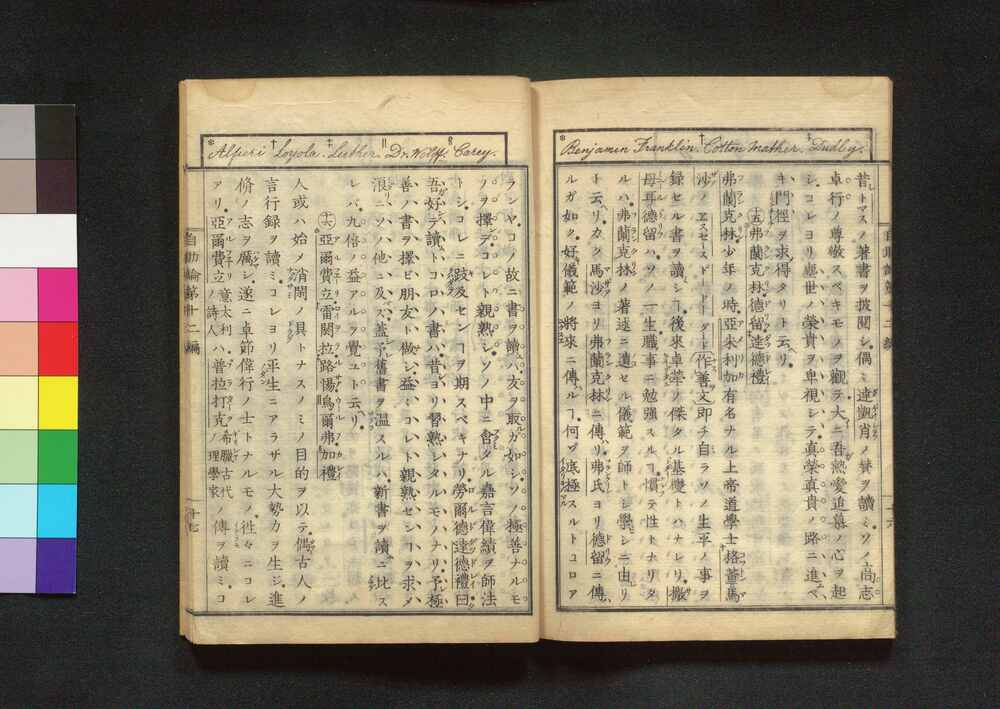 * † ‡
Benjamen Franklin. Cotton Mather. Dudly.
昔トマスノ著書ヲ披閱シ偶ミ達凱肖ノ賛ヲ讀ミソノ高志
卓行ノ尊敬スベキモノヲ觀テ大ニ吾熱愛追慕ノ心ヲ起
シコレヨリ塵世ノ榮貴ヲ卑視シテ真榮真貴ノ路ニ進ベ
キ門徑ヲ求得タリト云リ
十五弗蘭克林德留達德禮
弗蘭克林少年ノ時亞米利加有名ナル上帝道學士格董馬
沙ノヱスセースドードーグード作善文即チ自ラソノ生平ノ事ヲ
錄セル書ヲ讀シヿ後來卓犖ノ傑タル基礎トハナレリ撒
母耳德留ハソノ一生職事ニ勉強スルヿ慣テ性トナリタ
ルハ弗蘭克林ノ著述ニ遺セル儀範ヲ師トシ學シニ由リ
ト云リカク馬沙ヨリ弗蘭克林ニ傳リ弗氏ヨリ德留ニ傳
ルガ如ク好儀範ノ將來ニ傳ルヿ何ゾ底極スルトコロア
* † ‡ ‖ §
Alfieri Loyola. Luther. Dr. Wolff. Carey.
ランヤコノ故ニ書ヲ讀ハ友ヲ取ガ如シソノ極善ナルモ
ノヲ擇デコレト親熟シソノ中ニ含タル嘉言偉績ヲ師法
トシコレニ跂及センヿヲ期スベキナリ勞爾德達德禮曰
吾好テ讀トコロノ書ハ昔ヨリ習熟シタルモノナリ予極
善ノ書ヲ擇ビ朋友ト做シ益コレト親熟センヿヲ求メ
浪ニソノ他ニ及ズ蓋予舊書ヲ温スルハ新書ヲ讀ニ比ス
レバ九倍ノ益アルヲ覺ユト云リ
十六亞爾費立雷關拉路惕烏爾弗加禮
人或ハ始メ消閑ノ具トナスノミノ目的ヲ以テ偶古人ノ
言行録ヲ讀ミコレヨリ平生ニアラザル大勢力ヲ生ジ進
脩ノ志ヲ厲シ遂ニ卓節偉行ノ士トナルモノ往々ニコレ
アリ亞爾費立意太利ノ詩人ハ普拉打克希臘古代ノ理學家ノ傳ヲ讀ミコ
自助論第十二編
十七